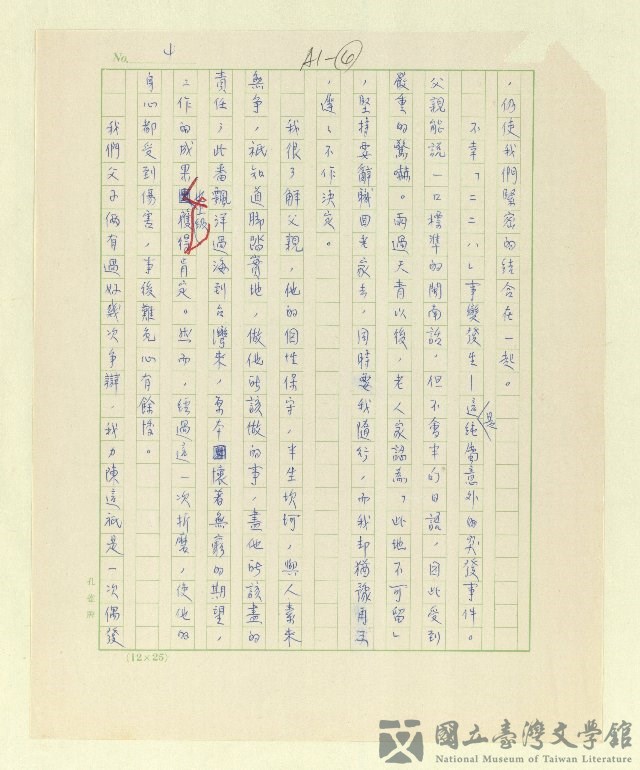 No. 4
A1-④
，仍使我們緊密的結合在一起。
不幸「二二八」事變發生—這是純屬意外的突發事件。
父親能說一口標準的閩南話，但不會半句日語，因此受到
嚴重的驚嚇。雨過天青以後，老人家認為「此地不可留」
，堅持要辭職回老家去，同時要我隨行，而我却猶豫再三
，遲遲不作決定。
我很了解父親，他的個性保守，半生坎坷，與人素來
無爭，祇知道脚踏實地，做他所該做的事，盡他所該盡的
責任；此番飄洋過海到台灣來，原本懷著無窮的期望，
工作的成果獲得上級肯定。然而，經過這一次折磨，使他的
身心都受到傷害，事後難免心有餘悸。
我們父子倆有過好幾次爭辯，我力陳這祇是一次偶發
(12×25)
國立臺灣文學館
National Museum of Taiwan Literature